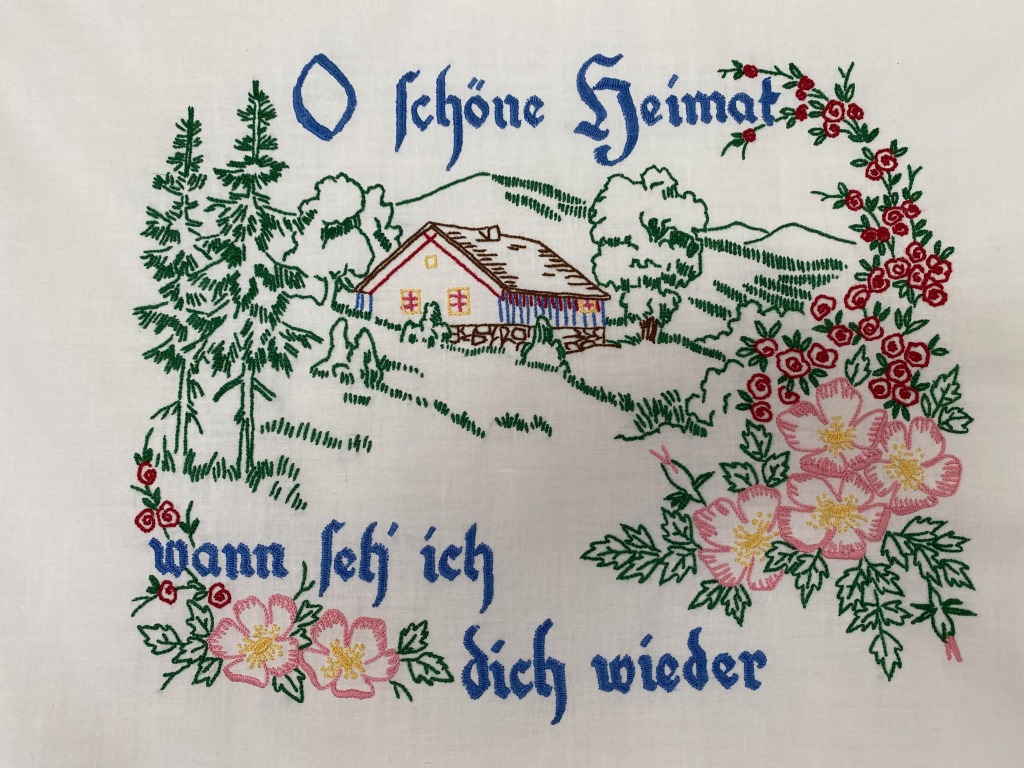 O schöne Heimat
wann seh' ich
dich wieder